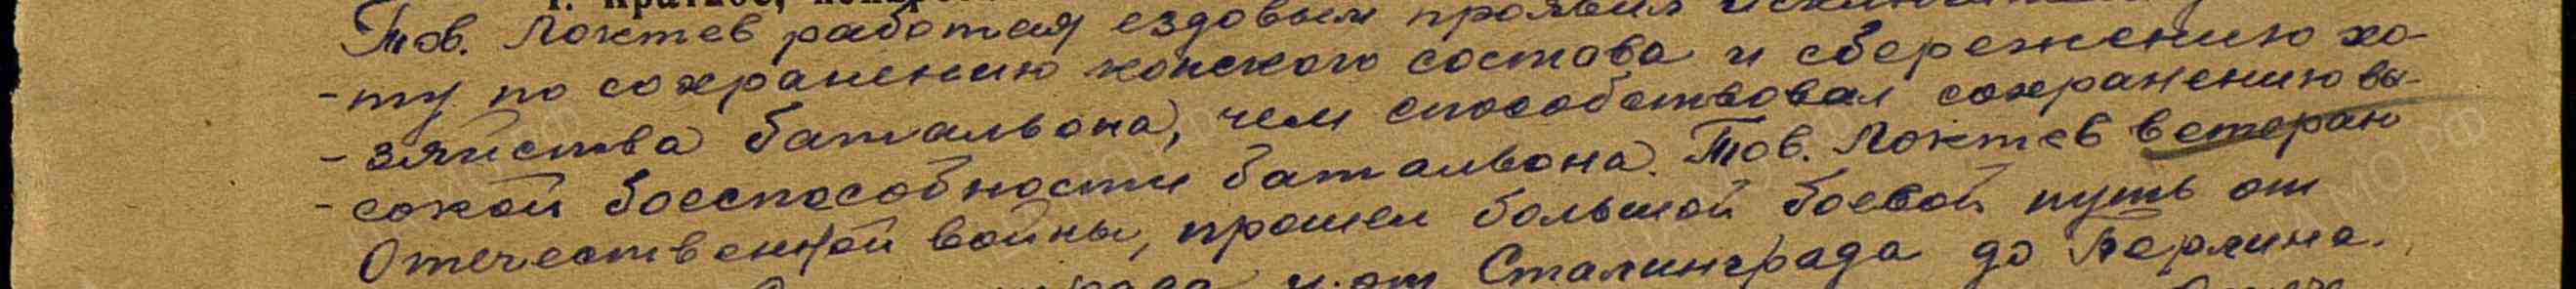 Тов. Локтев работая ездовым проявил
-ту по сохранению конского состава и сбережению хо-
-зяйства батальона, чем способствовал сохранению вы-
-сокой боеспособности батальона. Тов. Локтев ветеран
Отечественной войны, прошел большой боевой путь от
Сталинграда до Берлина.